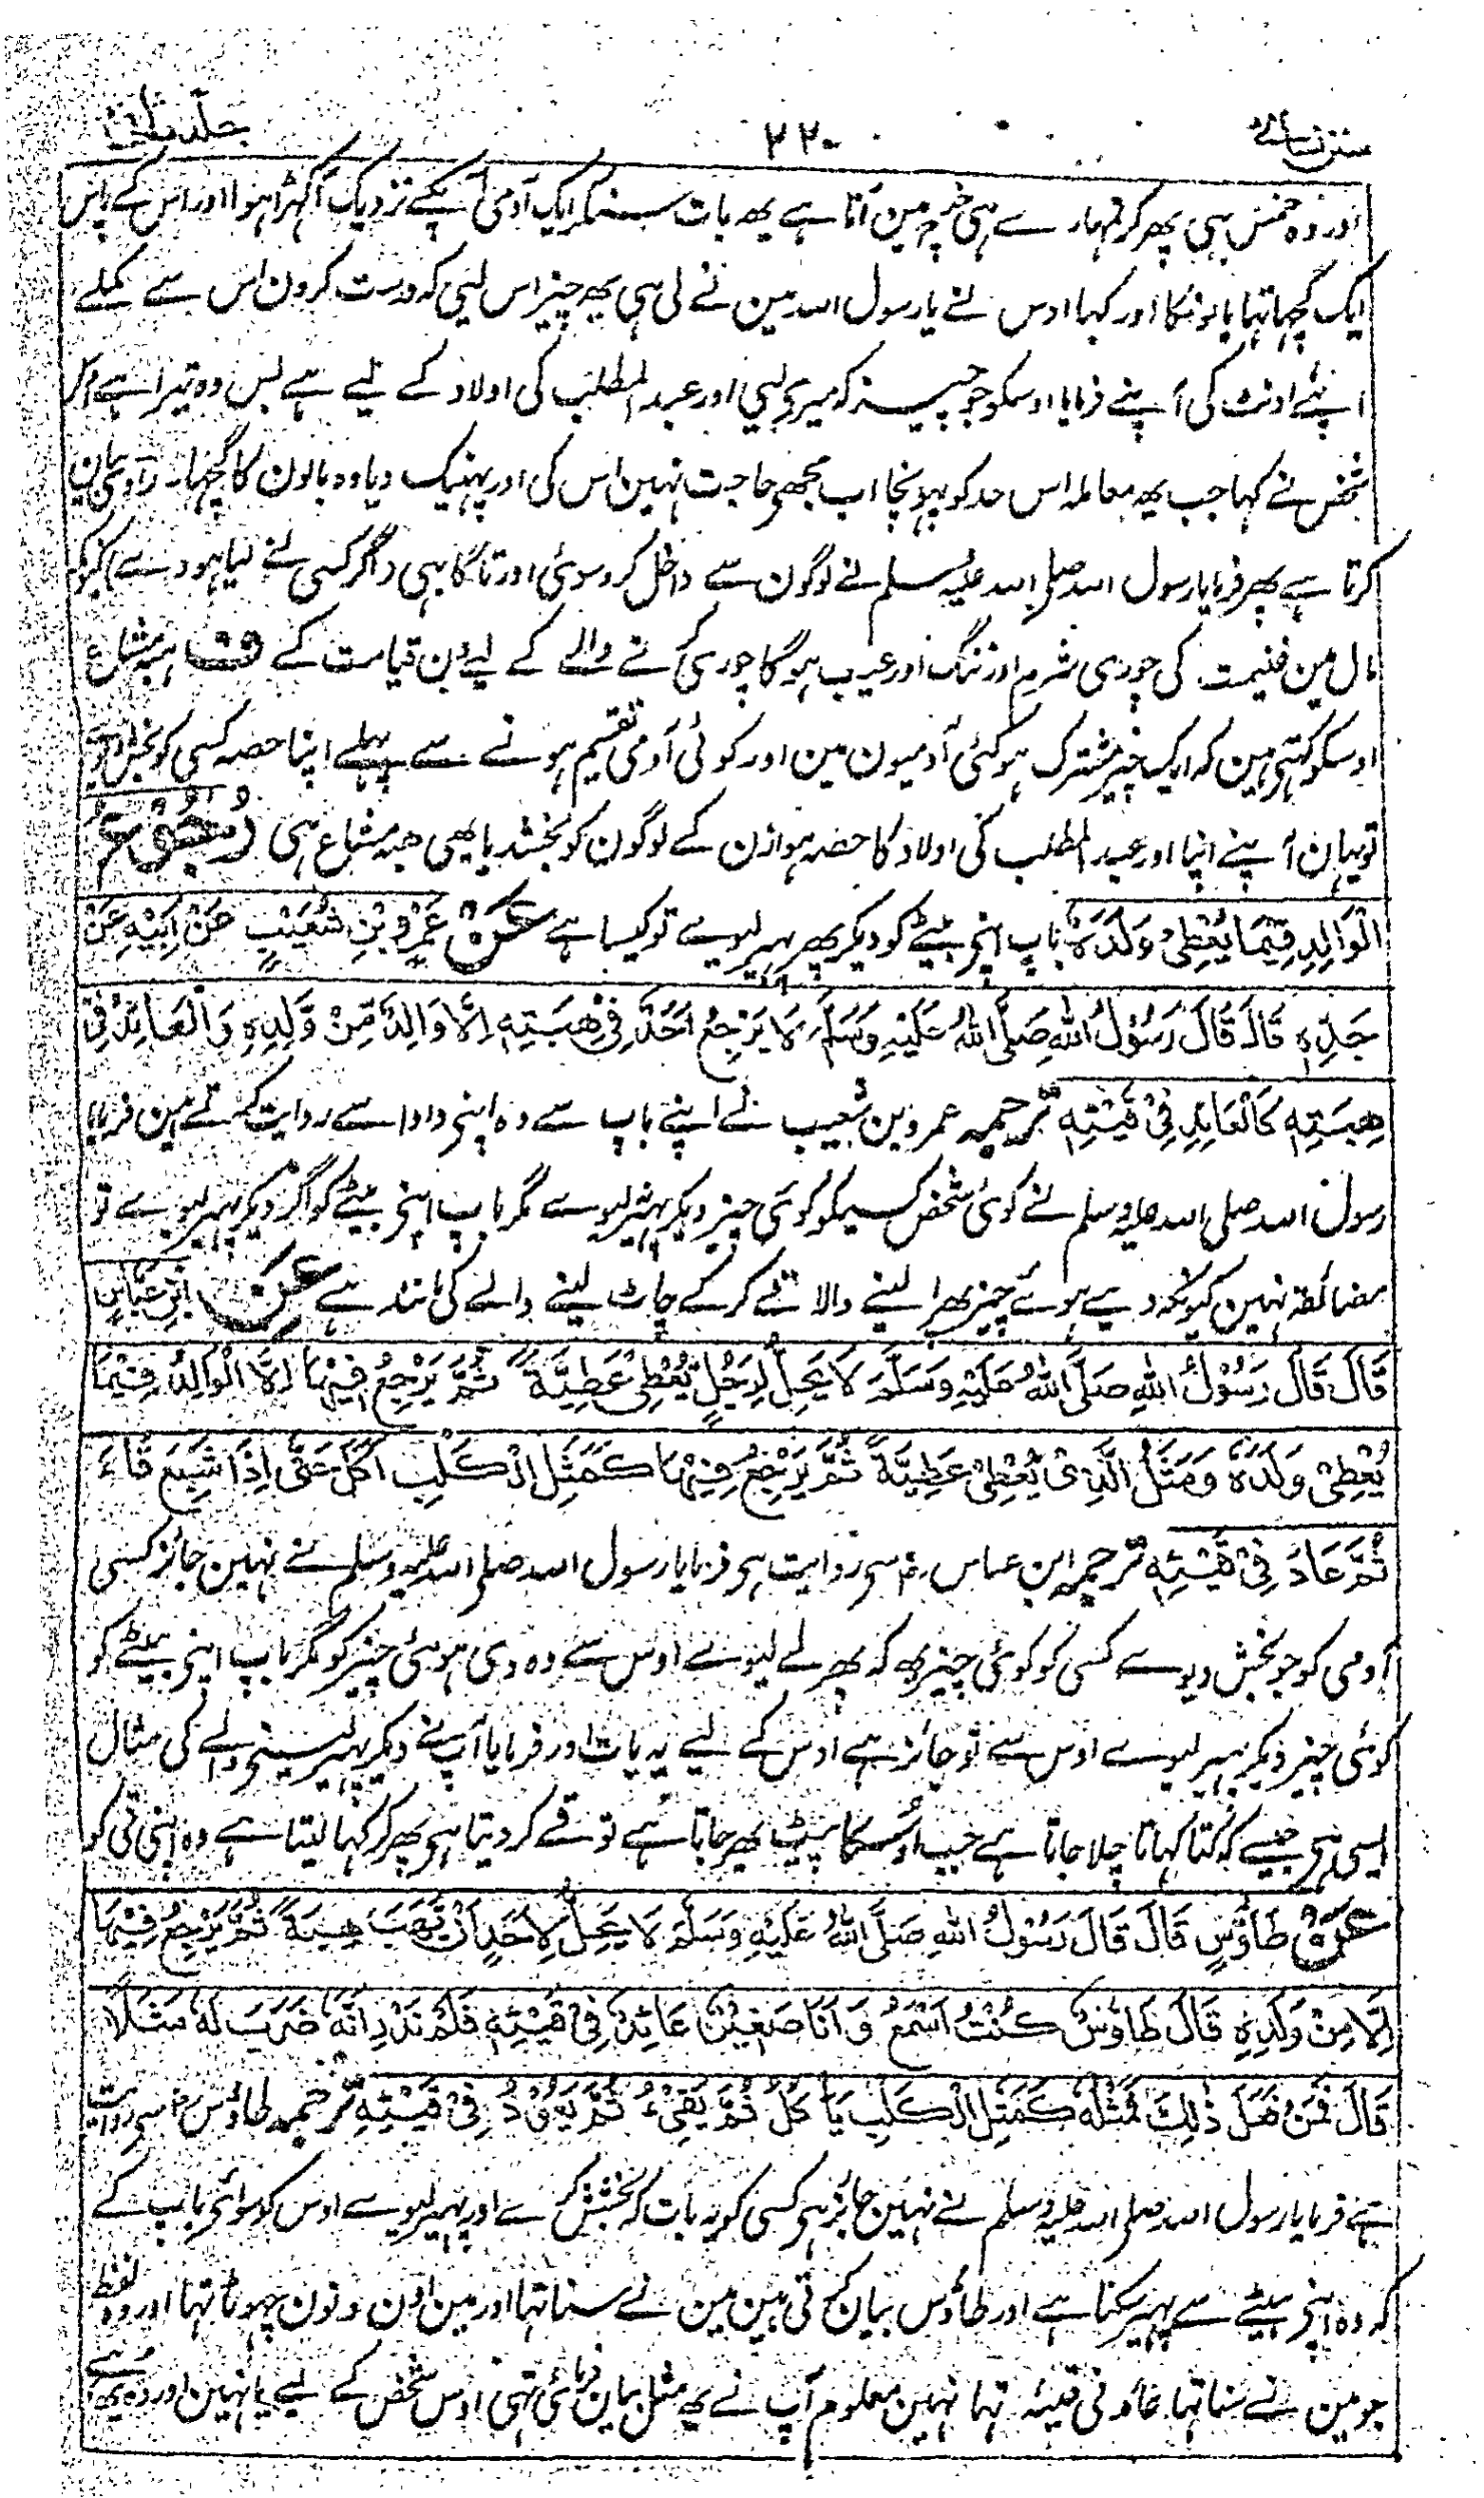 سنن نسائی ۲۲۰ جلد ثانی
اور وہ خمس بہی پھر کر تمہارے ہی خرچ مین آتا ہے یھہ بات سنکر ایک آدمی آپکے نزدیک آکہڑا ہوا اور اس کے پاس
ایک گچہا تہا بالونکا اور کہا اوس نے یا رسول اللہ مین نے لی ہی یھہ چیز اس لیی کہ درست کرون اس سے کملے
اپنے اونٹ کی آپنے فرمایا اوسکو جو چیز کہ میری لیی اور عبد المطلب کی اولاد کے لیے ہے بس وہ تیرا ہے اوس
شخص نے کہا جب یھہ معاملہ اس حد کو پہونچا اب مجھی حاجت نہین اس کی اور پہینک دیا وہ بالون کا گچہا۔ راوی بیان
کرتا ہے پھر فرمایا رسول اللہ صلی اللہ علیہ وسلم نے لوگون سے داخل کرو سوئی اور تاگا بہی (اگر کسی نے لیا ہووے) کیونکہ
مال مین غنیمت کی چوری شرم اور ننگ اور عیب ہوگا چوری کرنے والے کے لیے دن قیامت کے ف ہبہ مشاع
اوسکو کہتی ہین کہ ایک چیز مشترک ہو کئی آدمیون مین اور کوئی آدمی تقسیم ہونے سے پہلے اپنا حصہ کسی کو بخش دیوے
تو یہان آپنے اپنا اور عبد المطلب کی اولاد کا حصہ ہوازن کے لوگون کو بخشدیا یھی ھبہ مشاع ہی رُجُوْعُ
الْوَالِدِ فِيْمَا يُعْطِيْ وَلَدَهٗ باپ اپنی بیٹے کو دیکر پھر پہیر لیوے تو کیسا ہے عَنْ عَمْرِو بْنِ شُعَيْبٍ عَنْ اَبِيْهِ عَنْ
جَدِّهٖ قَالَ قَالَ رَسُوْلُ اللّٰهِ صَلَّى اللّٰهُ عَلَيْهِ وَسَلَّمَ لَا يَرْجِعُ اَحَدٌ فِيْ هِبَتِهٖ اِلَّا وَالِدٌ مِّنْ وَّلَدِهٖ وَالْعَائِدُ فِيْ
هِبَتِهٖ كَالْعَائِدِ فِيْ قَيْئِهٖ ترجمہ عمرو بن شعیب نے اپنے باپ سے وہ اپنی دادا سے روایت کرتے ہین فرمایا
رسول اللہ صلی اللہ علیہ وسلم نے کوئی شخص کسیکو کوئی چیز دیکر پہیر نہ لیوے مگر باپ اپنی بیٹے کو اگر دیکر پہیر لیوے تو
مضائقہ نہین کیونکہ دیے ہوئے چیز پھرا لینے والا قے کر کے چاٹ لینے والے کی مانند ہے عَنِ ابْنِ عَبَّاسٍ
قَالَ قَالَ رَسُوْلُ اللّٰهِ صَلَّى اللّٰهُ عَلَيْهِ وَسَلَّمَ لَا يَحِلُّ لِرَجُلٍ يُعْطِيْ عَطِيَّةً ثُمَّ يَرْجِعُ فِيْهَا اِلَّا الْوَالِدُ فِيْمَا
يُعْطِيْ وَلَدَهٗ وَمَثَلُ الَّذِيْ يُعْطِيْ عَطِيَّةً ثُمَّ يَرْجِعُ فِيْهَا كَمَثَلِ الْكَلْبِ اَكَلَ حَتّٰى اِذَا شَبِعَ قَاءَ
ثُمَّ عَادَ فِيْ قَيْئِهٖ ترجمہ ابن عباس رض سی روایت ہی فرمایا رسول اللہ صلی اللہ علیہ وسلم نے نہین جائز کسی
آدمی کو جو بخش دیوے کسی کو کوئی چیز یھہ کہ پھر لے لیوے اوس سے وہ دی ہوئی چیز کو مگر باپ اپنی بیٹے کو
کوئی چیز دیکر پہیر لیوے اوس سے تو جائز ہے اوس کے لیے یہ بات اور فرمایا آپ نے دیکر پہیر لینی والے کی مثال
ایسی ہی جیسے کہ کُتا کہاتا چلا جاتا ہے جب اُوسکا پیٹ بھر جاتا ہے تو قے کر دیتا ہی پھر کر کہا لیتا ہے وہ اپنی قی کو
عَنْ طَاؤُسٍ قَالَ قَالَ رَسُوْلُ اللّٰهِ صَلَّى اللّٰهُ عَلَيْهِ وَسَلَّمَ لَا يَحِلُّ لِاَحَدٍ اَنْ يَّهَبَ هِبَةً ثُمَّ يَرْجِعُ فِيْهَا
اِلَّا مِنْ وَّلَدِهٖ قَالَ طَاؤُسٌ كُنْتُ اَسْمَعُ وَاَنَا صَغِيْرٌ عَائِدٌ فِيْ قَيْئِهٖ فَلَمْ نَدْرِ اَنَّهٗ ضَرَبَ لَهٗ مَثَلًا
قَالَ فَمَنْ فَعَلَ ذٰلِكَ فَمَثَلُهٗ كَمَثَلِ الْكَلْبِ يَاْكُلُ ثُمَّ يَقِيْءُ ثُمَّ يَعُوْدُ فِيْ قَيْئِهٖ ترجمہ طاؤس رض سی روایت
ہے فرمایا رسول اللہ صلی اللہ علیہ وسلم نے نہین جائز ہی کسی کو یہ بات کہ بخشش کرے اور پہیر لیوے اوس کو سوائی باپ کے
کہ وہ اپنی بیٹے سے پہیر سکتا ہے اور طاؤس بیان کرتی ہین مین نے سنا تہا اور مین اون دنون چہوٹا تہا اور وہ لفظ
جو مین نے سنا تہا عائد فی قیئہ تہا نہین معلوم آپ نے یھہ مثل بیان فرمائی تہی اوس شخص کے لیے یا نہین اور وہ یھہ ہے